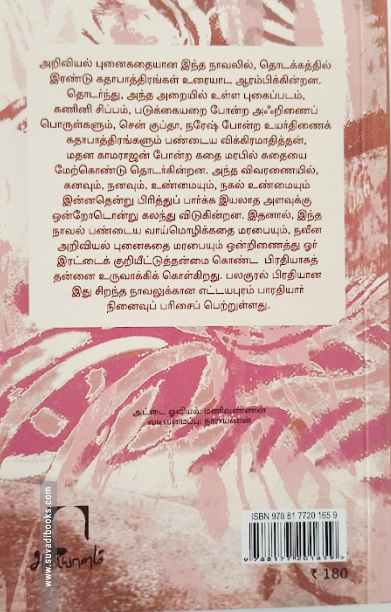 அறிவியல் புனைகதையான இந்த நாவலில், தொடக்கத்தில்
இரண்டு கதாபாத்திரங்கள் உரையாட ஆரம்பிக்கின்றன.
தொடர்ந்து, அந்த அறையில் உள்ள புகைப்படம்,
கணினி சிப்பம், படுக்கையறை போன்ற அஃறிணைப்
பொருள்களும், சென் குப்தா, நரேஷ் போன்ற உயர்திணைக்
கதாபாத்திரங்களும் பண்டைய விக்கிரமாதித்தன்,
மதன காமராஜன் போன்ற கதை மரபில் கதையை
மேற்கொண்டு தொடர்கின்றன. அந்த விவரணையில்,
கனவும், நனவும், உண்மையும், நகல் உண்மையும்
இன்னதென்று பிரித்துப் பார்க்க இயலாத அளவுக்கு
ஒன்றோடொன்று கலந்து விடுகின்றன. இதனால், இந்த
நாவல் பண்டைய வாய்மொழிக்கதை மரபையும், நவீன
அறிவியல் புனைகதை மரபையும் ஒன்றிணைத்து ஓர்
இரட்டைக் குறியீட்டுத்தன்மை கொண்ட பிரதியாகத்
தன்னை உருவாக்கிக் கொள்கிறது. பலகுரல் பிரதியான
இது சிறந்த நாவலுக்கான எட்டயபுரம் பாரதியார்
நினைவுப் பரிசைப் பெற்றுள்ளது.
அட்டை ஓவியம்: மணிவண்ணன்
வடிவமைப்பு: நாராயணன்
www.suvadibooks.com
ISBN 978 81 7720 165 9
9 788177 201659
₹ 180